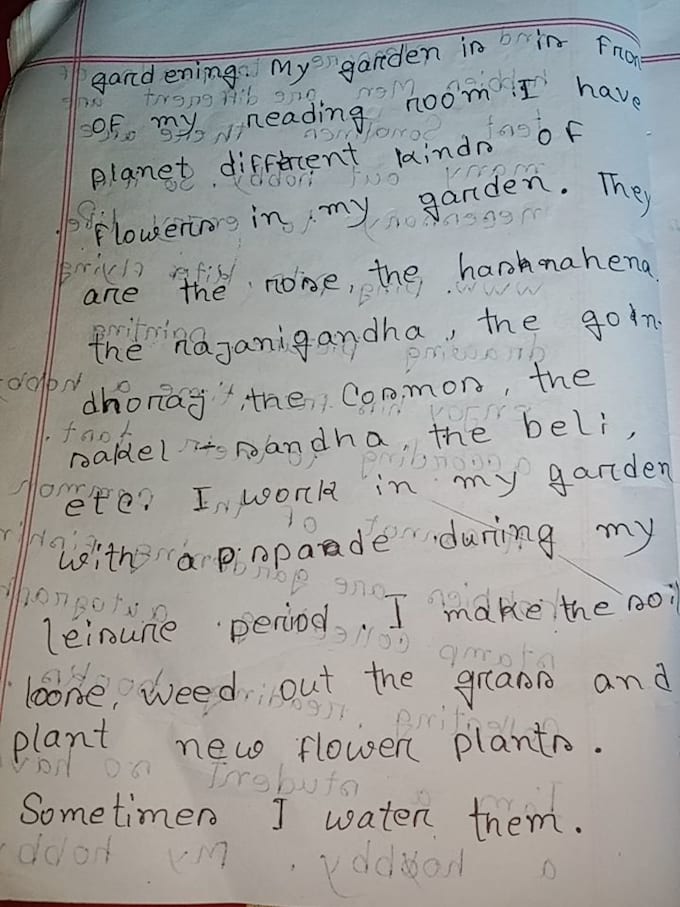 gardening. My garden in in Fron
OF my reading room. I have
planet different kinds of
flowers in my garden. They
are the rose, the hashnahena
the rajanigandha, the goln-
dhoraj, the Cosmos, the
sakel - sandha, the beli,
etc. I work in my garden
with a during my
leisure period. I make the soil
loose, weed out the grass and
plant new flower plants.
Sometimes I water them.